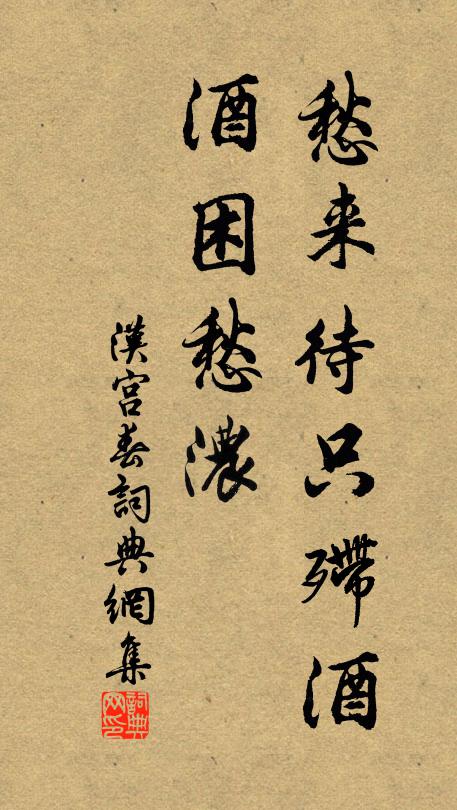 愁来待只殢酒
酒困愁濃
漢宮春詞典網集
詞典网印